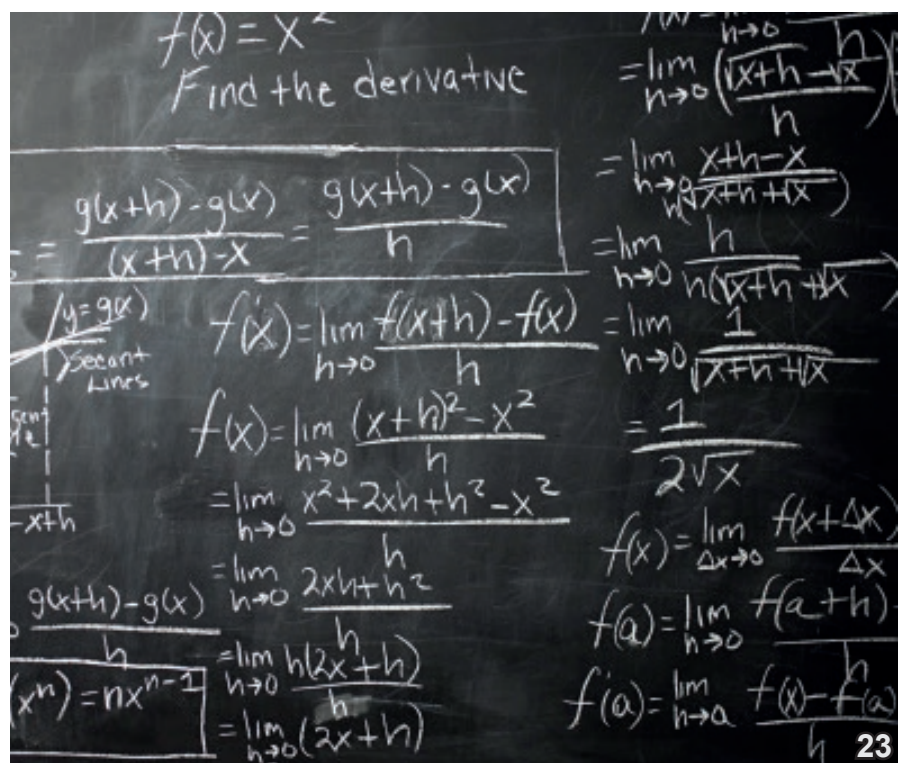 f(x) = x²
Find the derivative
= g(x+h) - g(x) / (x+h) - x = g(x+h) - g(x) / h
y = g(x)
Secant
Lines
-x+h
g(x+h) - g(x) / h
(xⁿ) = nxⁿ⁻¹
f'(x) = lim h→0 f(x+h) - f(x) / h
f(x) = lim h→0 (x+h)² - x² / h
= lim h→0 x² + 2xh + h² - x² / h
= lim h→0 2xh + h² / h
= lim h→0 h(2x+h) / h
= lim h→0 (2x+h)
h→0 h
= lim h→0 (√x+h - √x / h)(
= lim h→0 x+h-x / h(√x+h + √x)
= lim h→0 h / h(√x+h + √x)
= lim h→0 1 / √x+h + √x
= 1 / 2√x
f(x) = lim Δx→0 f(x+Δx) / Δx
f(a) = lim h→0 f(a+h) - / h
f'(a) = lim h→a f(x) - f(a) / h
23